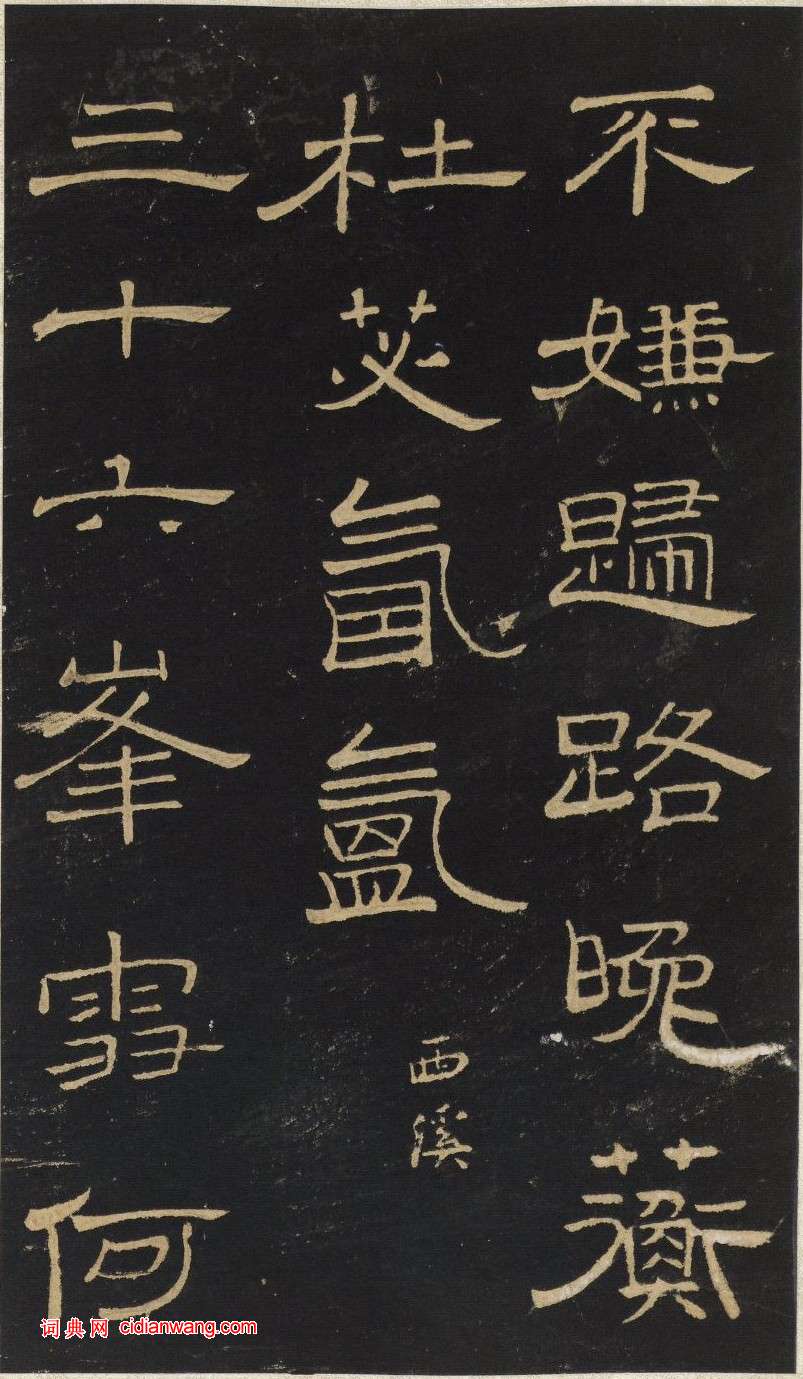 不嫌歸路晚蘅
杜苾氤氳
西溪
三十六峯雪何
词典网 cidianwang.com